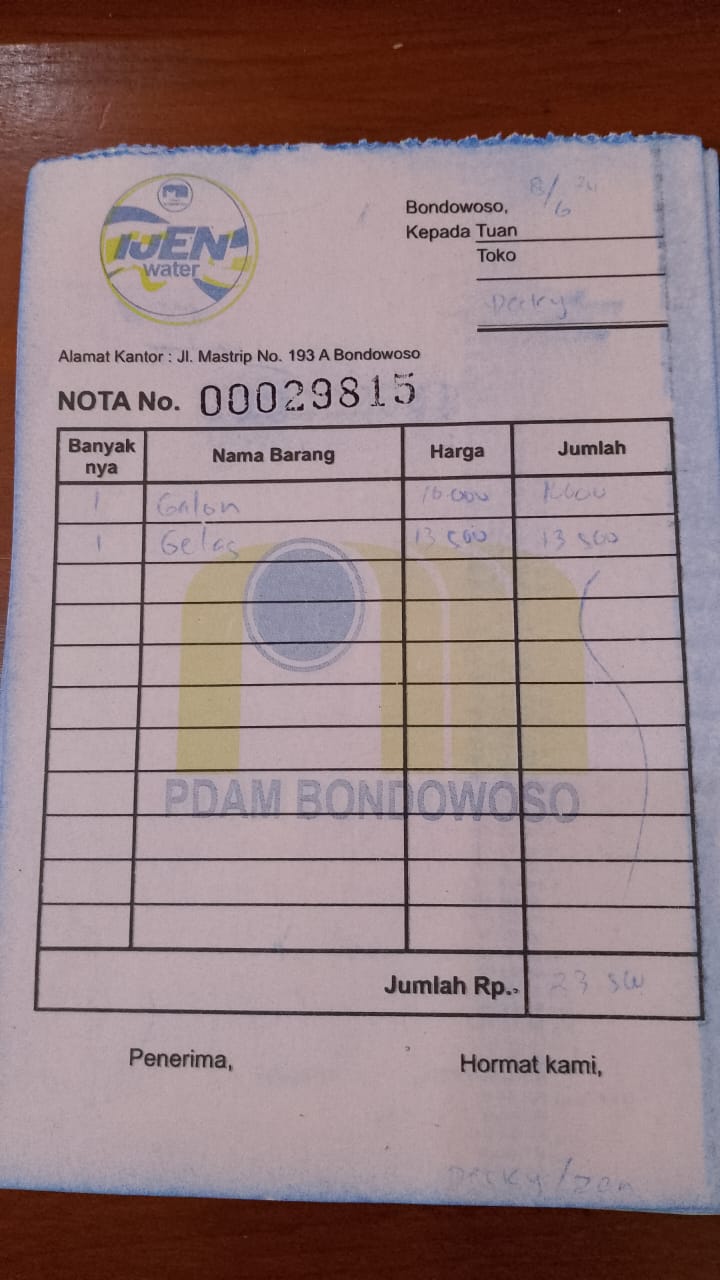 IJEN
water
Bondowoso, 8/6 24
Kepada Tuan
Toko
Decky
Alamat Kantor : Jl. Mastrip No. 193 A Bondowoso
NOTA No. 00029815
Banyak nya Nama Barang Harga Jumlah
1 Galon 10.000 10.000
1 Gelas 13 500 13 500
PDAM BONDOWOSO
Jumlah Rp. 23 500
Penerima, Hormat kami,
Decky/Zen